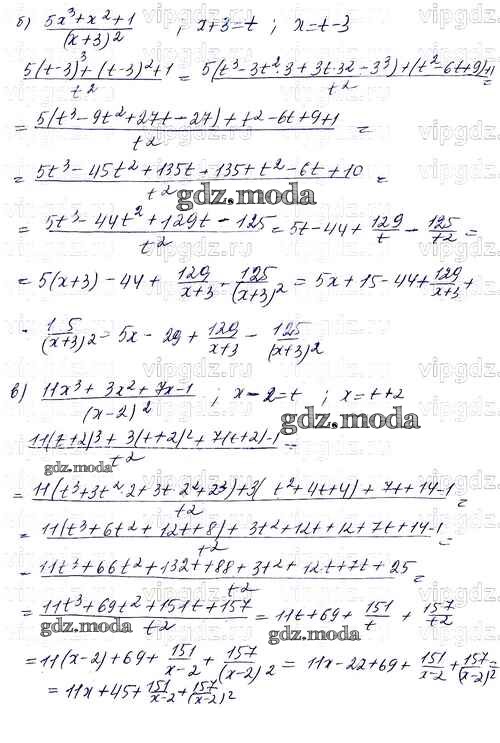 б) (5x³+x²+1)/(x+3)² ; x+3=t ; x=t-3
(5(t-3)³+(t-3)²+1)/t² = (5(t³-3t²·3+3t·3²-3³)+(t²-6t+9)+1)/t²
= (5(t³-9t²+27t-27)+t²-6t+9+1)/t² =
= (5t³-45t²+135t+135+t²-6t+10)/t² =
gdz.moda
= (5t³-44t²+129t-125)/t² = 5t-44+129/t-125/t² =
= 5(x+3)-44+129/(x+3)-125/(x+3)² = 5x+15-44+129/(x+3)+
- 15/(x+3)² = 5x-29+129/(x+3)-125/(x+3)²
в) (11x³+3x²+7x-1)/(x-2)² ; x-2=t ; x=t+2
gdz.moda
(11(t+2)³+3(t+2)²+7(t+2)-1)/t² =
gdz.moda
= (11(t³+3t²·2+3t·2²+2³)+3(t²+4t+4)+7t+14-1)/t² =
= (11(t³+6t²+12t+8)+3t²+12t+12+7t+14-1)/t² =
- (11t³+66t²+132t+88+3t²+12t+7t+25)/t² =
= (11t³+69t²+151t+157)/t² = 11t+69+151/t+157/t²
gdz.moda
gdz.moda
= 11(x-2)+69+151/(x-2)+157/(x-2)² = 11x-22+69+151/(x-2)+157/(x-2)² =
= 11x+45+151/(x-2)+157/(x-2)²
vipgdz.ru